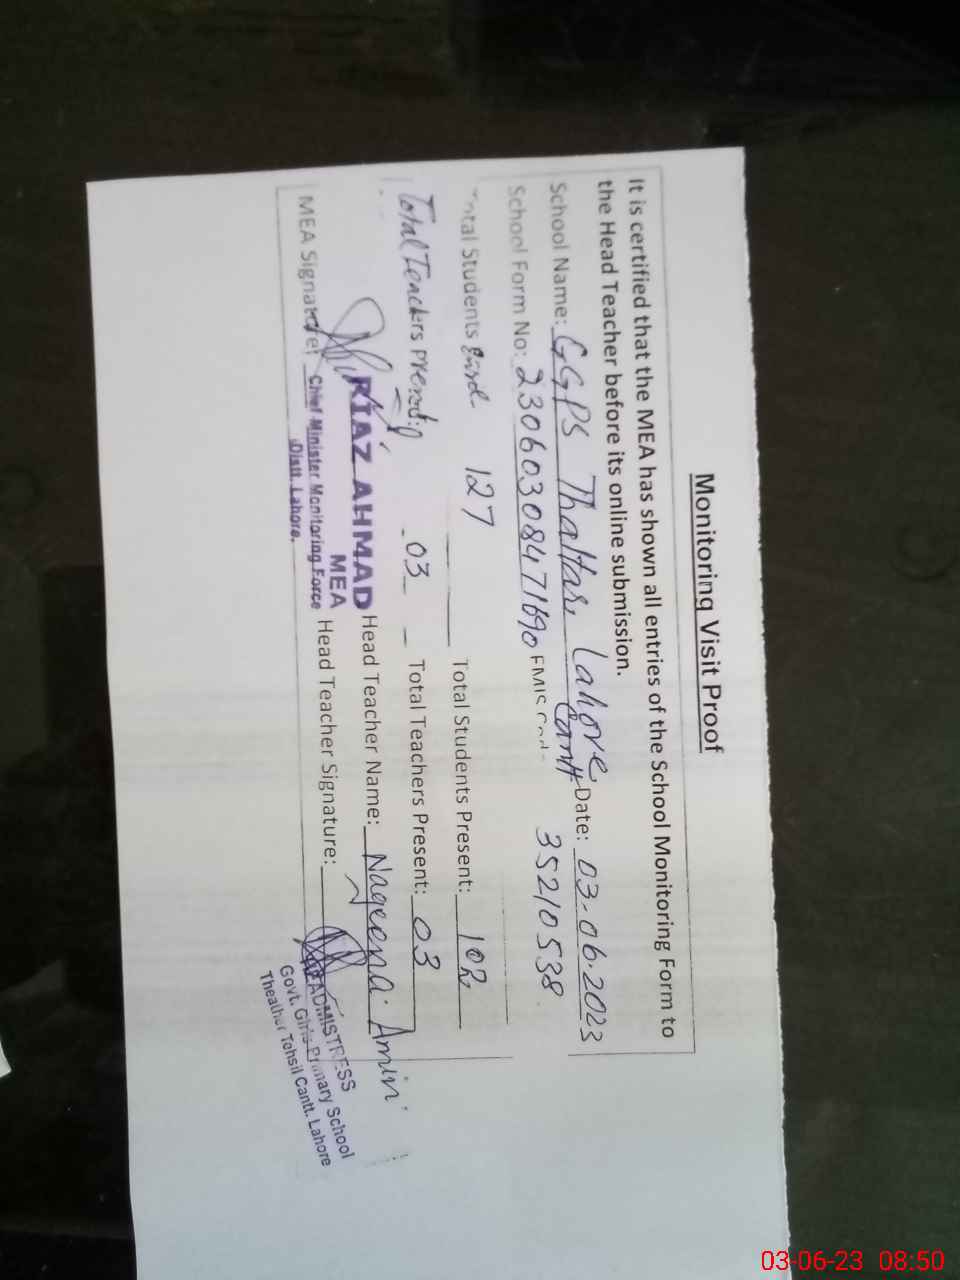 Monitoring Visit Proof
It is certified that the MEA has shown all entries of the School Monitoring Form to
the Head Teacher before its online submission.
School Name: GGPS Thattar, Lahore Cantt Date: 03-06-2023
School Form No: 23060308471690 EMIS 35210538
Total Students 127 Total Students Present: 102
Total Teachers 03 Total Teachers Present: 03
RIAZ AHMAD Head Teacher Name: Nageena Amin
MEA
MEA Signature: Chief Minister Monitoring Force Head Teacher Signature:
Distt. Lahore.
HEADMISTRESS
Govt. Girls Primary School
Theather Tehsil Cantt. Lahore
03-06-23 08:50